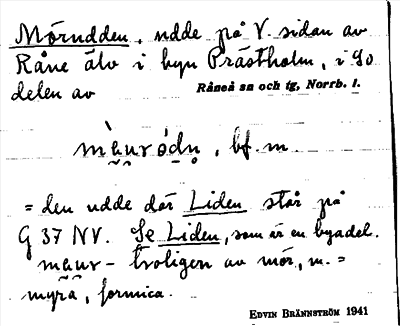 Mörudden, udde på V. sidan av
Råne älv i byn Prästholm, i So
delen av
Råneå sn och tg, Norrb. l.
mau̯rόdn̥, bf. m
= den udde där Liden står på
G 37 NV. Se Liden, som är en byadel.
maur- troligen av mör, m. =
myra, formica.
EDVIN BRÄNNSTRÖM 1941